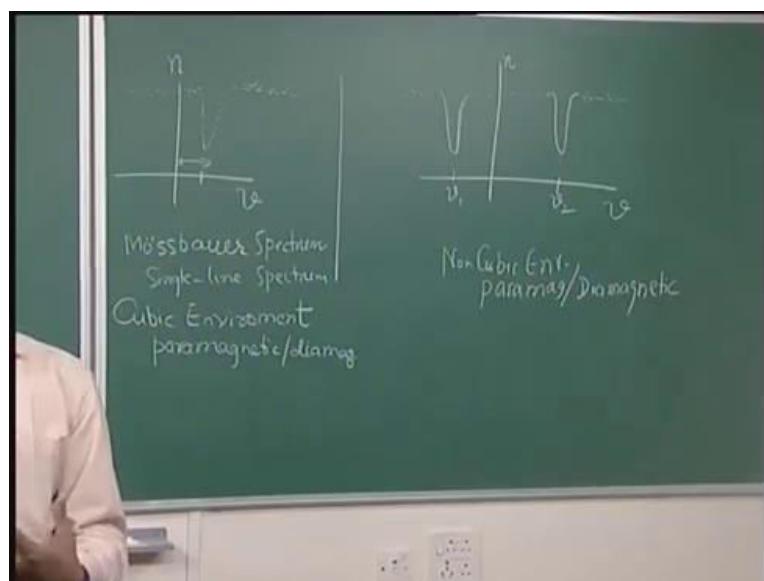 n
v
Mössbauer Spectrum
Single-line Spectrum
Cubic Enviroment
paramagnetic/diamag
n
v₁
v₂
v
Non Cubic Env.
paramag/Diamagnetic